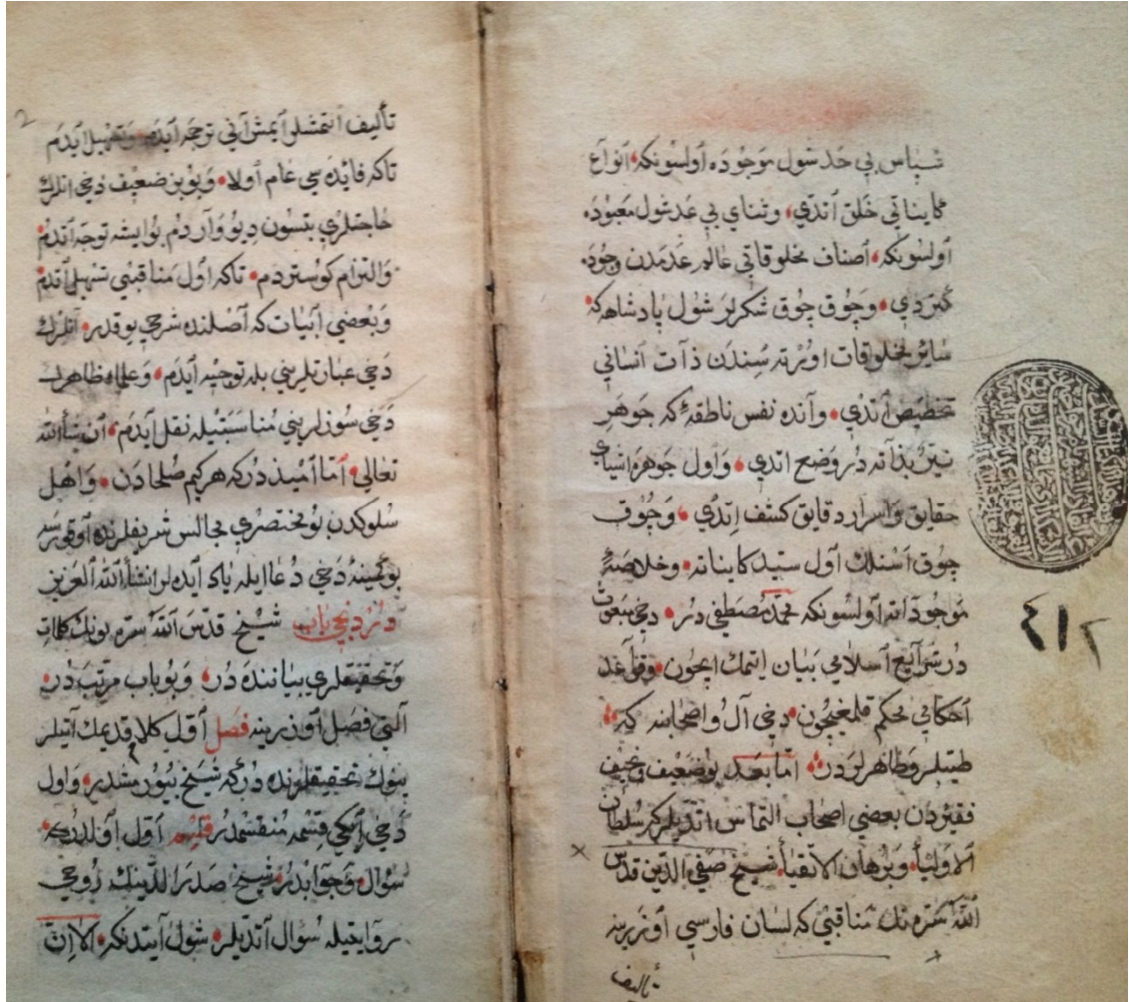 سپاس بی حد شول موجوده اولسونکه انواع
کایناتی خلق اتدی وثنای بی عد شول معبوده
اولسونکه اصناف مخلوقاتی عالم عدمدن وجوده
کتردی وچوق چوق شکرلر شول پادشاهه که
سایر مخلوقات اوزرنه سندن ذات انسانی
تخصیص اتدی وآنده نفس ناطقه که جوهر
بذاته در وضع اتدی واول جوهره اشیای
حقایق واسرار دقایق کشف اتدی وچوق
چوق اول سید کایناته وخلاصهٔ
موجوداته اولسونکه محمد مصطفی در دخی مبعوث
در شرایع اسلامی بیان ایتمک ایچون وقواعد
احکامی محکم قلمغیچون دخی آل واصحابنه که
طیبلر وطاهرلردن اما بعد بو ضعیف ونحیف
فقیردن بعضی اصحاب التماس اتدیلرکه سلطان
الاولیا وبرهان الاتقیا شیخ صفی الدین قدس
الله سره نک مناقبی که لسان فارسی اوزرینه
تألیف
۴۱۲
2
تألیف اتمشلر ایمش آنی ترجمه ایدم وتسهیل ایدم
تاکه فایده سی عام اولا وبو بن ضعیف دخی انلرک
حاجتلری بتسون دیو واردم بو ایشه توجه اتدم
والتزام کوستردم تاکه اول مناقبی تسهیل اتدم
وبعضی ابیات که اصلنده شرحی یوقدر انلرک
دخی عبارتلرینی بله توجیه ایدم وعلماء ظاهرک
دخی سوزلرینی مناسبتیله نقل ایدم ان شاء الله
تعالی اما امیددر که هر کیم صلحادن واهل
سلوکدن بو مختصری مجالس شریفلرنده اوقورسه
بو کمینه دخی دعا ایله یاد ایده لر انشاء الله العزیز
دردنجی باب شیخ قدس الله سره نونک کلمات
وتحقیقلری بیاننده در وبو باب مرتبدر
التی فصل اوزرینه فصل اول کلام قدیمک آیتلر
ینوک تحقیقلرنده در که شیخ بیورمشدر واول
دخی ایکی قسمه منقسمدر قسم اول اولدرکه
سؤال وجوابدر شیخ صدر الدینک روحی
روایتیله سؤال اتدیلر شول آیتدنکه الا ان